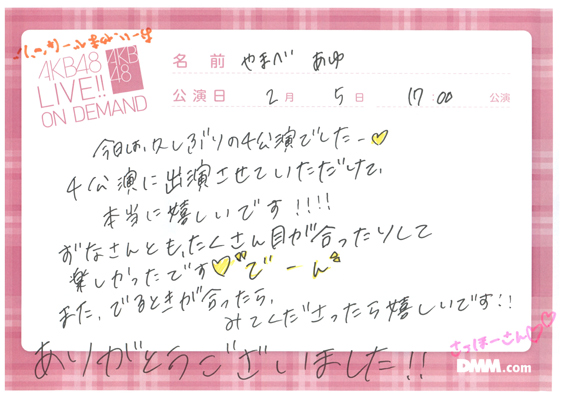 AKB48
LIVE!!
ON DEMAND
AKB
48
名 前 やまべ あゆ
公演日 2月 5日 17:00 公演
今日は、久しぶりの4公演でしたー♡
4公演に出演させていただけて、
本当に嬉しいです!!!!
みなさんとも、たくさん目が合ったりして
楽しかったです♡"でーん"
また、でるときが合ったら、
みてくださったら嬉しいです!!
さっほーさん♡♡
ありがとうございました!!
DMM.com